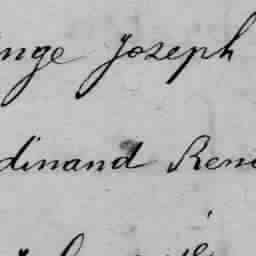 inge Joseph
dinand Ren